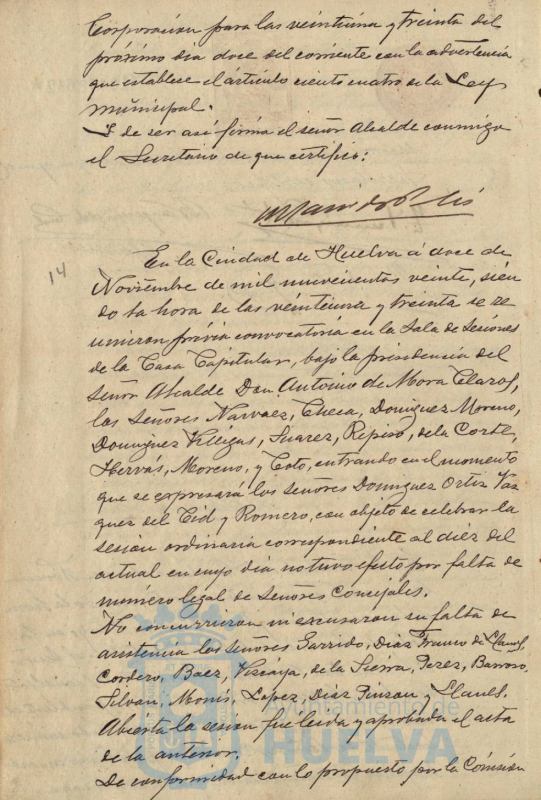 Corporación para las veintiuna y treinta del
próximo dia doce del corriente con la advertencia
que establece el artículo ciento cuatro de la Ley
Municipal.
Y de ser así firma el señor Alcalde conmigo
el Secretario de que certifico:
14
En la Ciudad de Huelva á doce de
Noviembre de mil novecientos veinte, sien
do la hora de las veintiuna y treinta se re
unieron prévia convocatoria en la Sala de Sesiones
de la Casa Capitular, bajo la presidencia del
Señor Alcalde Don Antonio de Mora Claros,
los Señores Narvaez, Checa, Dominguez Moreno,
Dominguez Villegas, Suarez, Repiso, de la Corte,
Hervás, Moreno, y Toto, entrando en el momento
que se expresará los Señores Dominguez Ortiz Vaz
quez del Cid y Romero, con objeto de celebrar la
sesion ordinaria correspondiente al diez del
actual en cuyo dia no tuvo efecto por falta de
número legal de Señores Concejales.
No concurrieron ni escusaron su falta de
asistencia los Señores Garrido, Diaz Franco de Llanos,
Cordero, Baez, Vizcaya, de la Sierra, Perez, Barroso,
Silván, Monís, López, Diaz Pinzon y Llanes.
Abierta la sesion fué leida y aprobada el acta
de la anterior.
De conformidad con lo propuesto por la Comisión
Ayuntamiento de
HUELVA